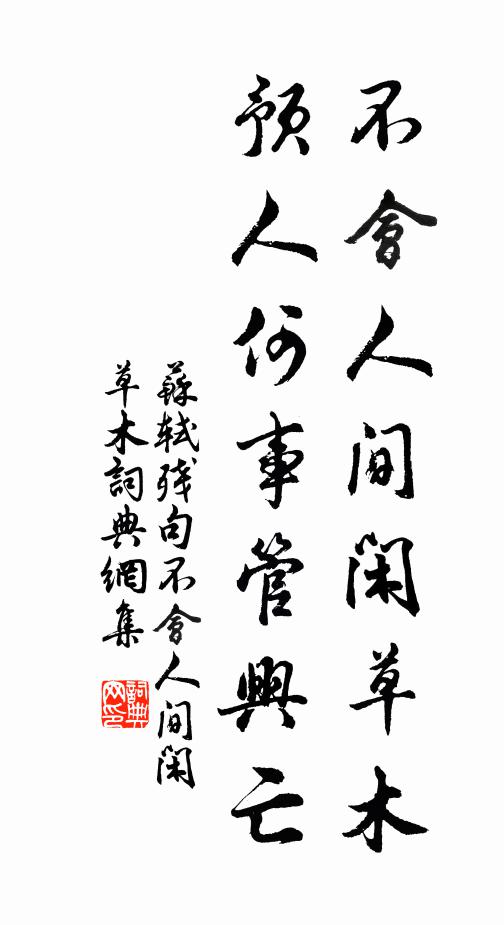 不會人間閑草木
預人何事管興亡
蘇軾殘句不會人間閑
草木詞典網集
詞典網印